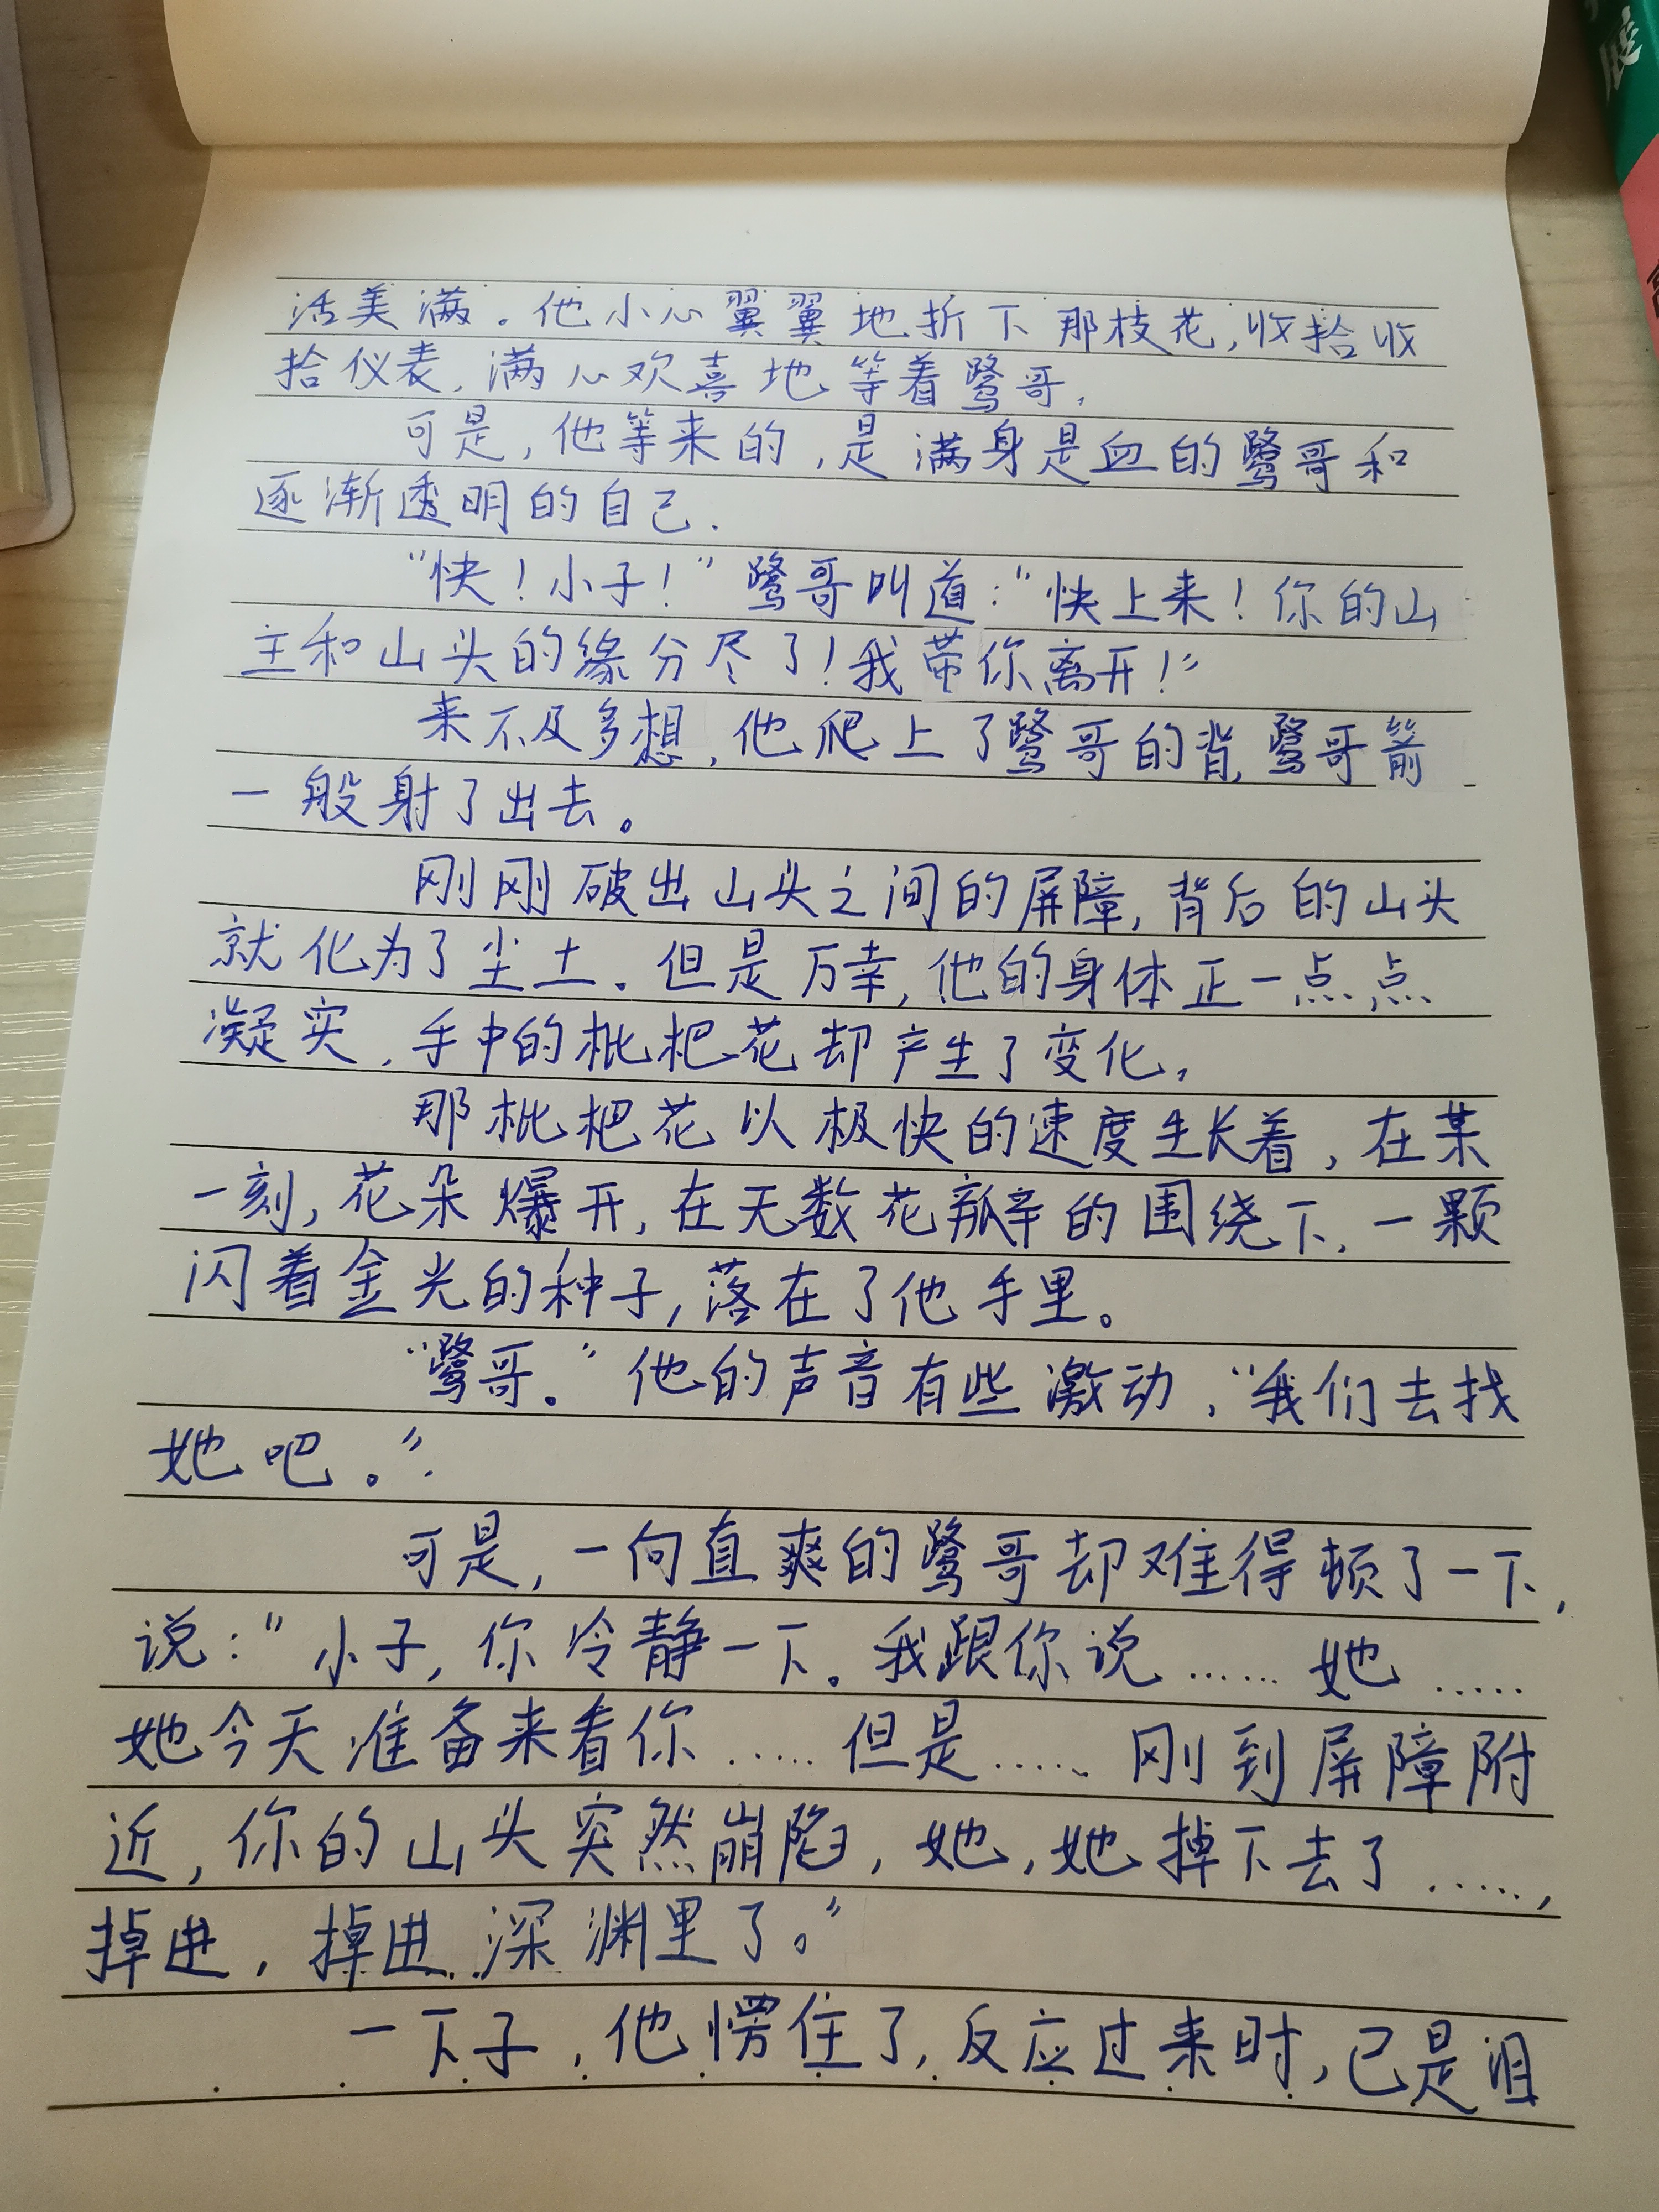 展
活美满。他小心翼翼地折下那枝花,收拾收
拾仪表,满心欢喜地等着鹭哥。
可是,他等来的,是满身是血的鹭哥和
逐渐透明的自己.
“快!小子!”鹭哥叫道:“快上来!你的山
主和山头的缘分尽了!我带你离开!”
来不及多想,他爬上了鹭哥的背,鹭哥箭
一般射了出去。
刚刚破出山头之间的屏障,背后的山头
就化为了尘土。但是万幸,他的身体正一点点
凝实,手中的枇杷花却产生了变化。
那枇杷花以极快的速度生长着,在某
一刻,花朵爆开,在无数花瓣的围绕下,一颗
闪着金光的种子,落在了他手里。
“鹭哥。”他的声音有些激动,“我们去找
她吧。”
可是,一向直爽的鹭哥却难得顿了一下,
说:“小子,你冷静一下。我跟你说……她……
她今天准备来看你……但是……刚到屏障附
近,你的山头突然崩陷,她,她掉下去了……,
掉进,掉进深渊里了。”
一下子,他愣住了,反应过来时,已是泪